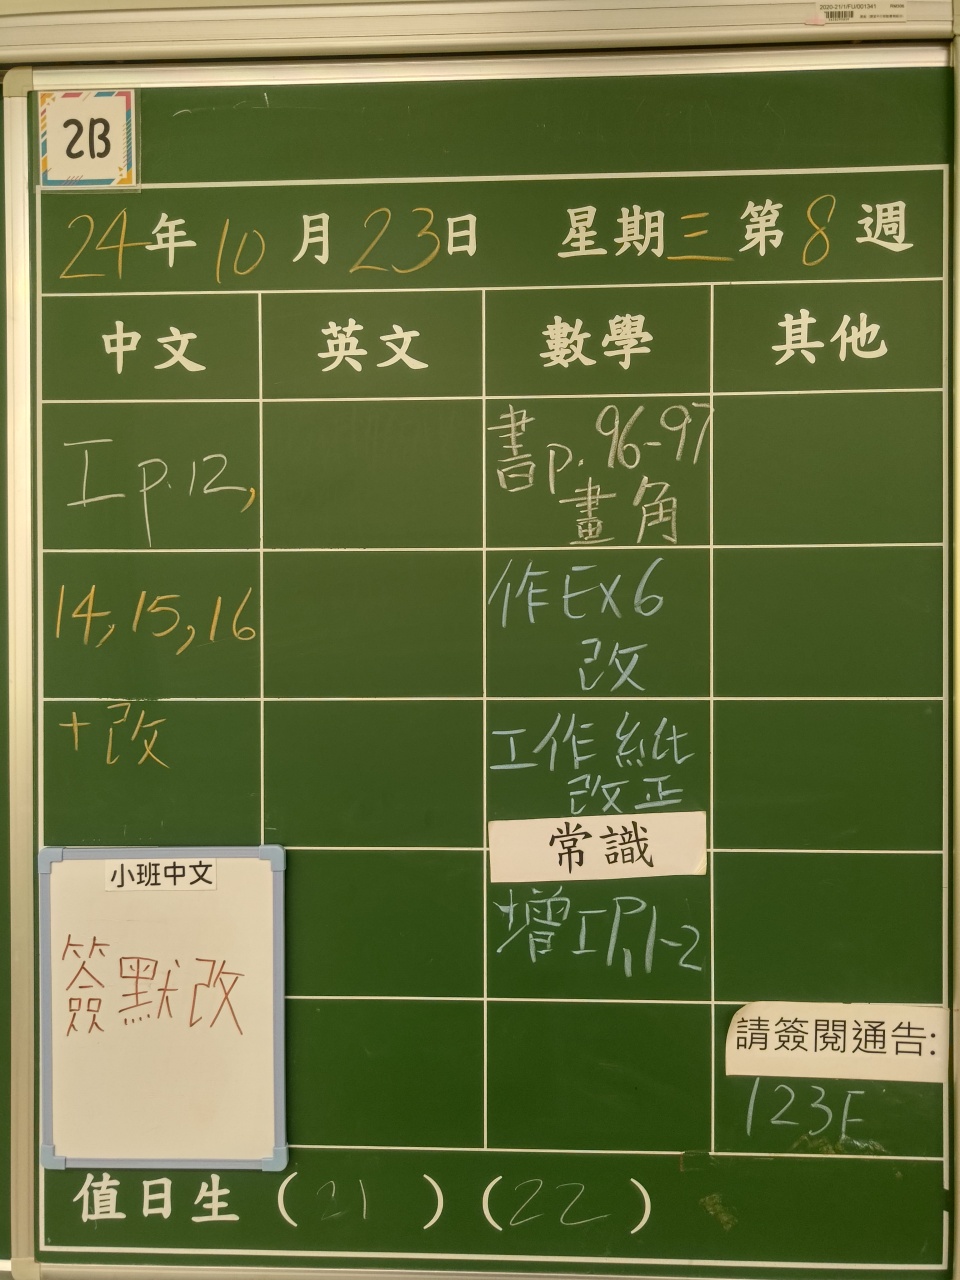 2020-21/1/FU/001341
2B
24年10月23日 星期三第8週
中文 英文 數學 其他
工p.12,
14,15,16
+改
書p.96-97
畫角
作Ex6
改
工作紙
改正
常識
增工P.1-2
小班中文
簽默改
請簽閱通告:
123E
值日生（21）（22）